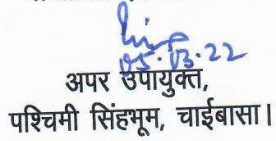 05.03.22
अपर उपायुक्त,
पश्चिमी सिंहभूम, चाईबासा।